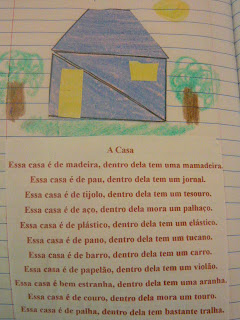 A Casa
Essa casa é de madeira, dentro dela tem uma mamadeira.
Essa casa é de pau, dentro dela tem um jornal.
Essa casa é de tijolo, dentro dela tem um tesouro.
Essa casa é de aço, dentro dela mora um palhaço.
Essa casa é de plástico, dentro dela tem um elástico.
Essa casa é de pano, dentro dela tem um tucano.
Essa casa é de barro, dentro dela tem um carro.
Essa casa é de papelão, dentro dela tem um violão.
Essa casa é bem estranha, dentro dela tem uma aranha.
Essa casa é de couro, dentro dela mora um touro.
Essa casa é de palha, dentro dela tem bastante tralha.